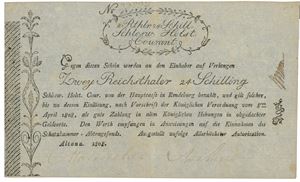 No
2 Rthlr 24 Schill
Schlesw. Holst.
Courant
Gegen diesen Schein werden an den Einhaber auf Verlangen
Zwey Reichsthaler 24 Schilling
Schlesw. Holst. Cour. von der Hauptcasse in Rendsburg bezahlt, und gilt solcher,
bis zu dessen Einlösung, nach Vorschrift der Königlichen Verordnung vom
April 1808, als gute Zahlung in allen Königlichen Hebungen in abgedachter
Geldsorte. Den Werth empfangen in Anweisungen auf die Einnahmen des
Schatzkammer-Abtragsfonds. Ausgestellt zufolge Allerhöchster Autorisation.
Altona 1808.